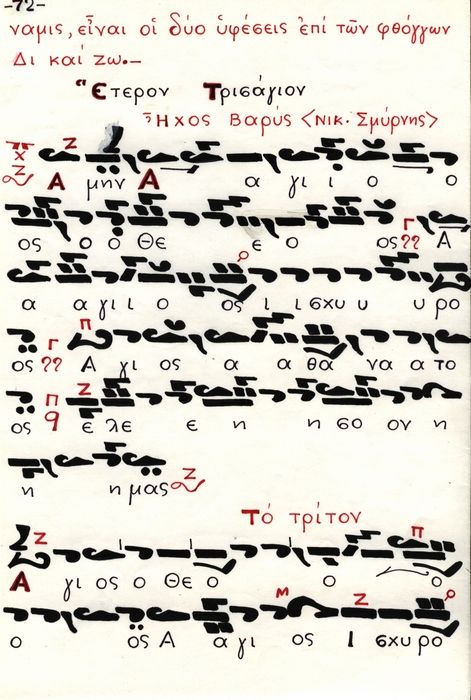 -72-
ναμις, εἶναι οἱ δύο ὑφέσεις ἐπί τῶν φθόγγων
Δι καί Ζω.—
Ἕτερον Τρισάγιον
Ἦχος Βαρύς <Νικ. Σμύρνης>
Ζ
Α μήν Α α γι ι ο ο
Γ
ος ο ο Θε ε ο ος Α
α α γι ι ο ος ι ι σχυ υ υ ρο
Γ Π
ος Α γι ος α α θα να α το
Π Ζ
ος ε λε ε η η σο ον η
η η μας
Ζ
Τό τρίτον
Ζ Π
Α γι ος ο Θε ο ο ο
Μ Ζ
ο ός Α α γι ος Ι σχυ ρο